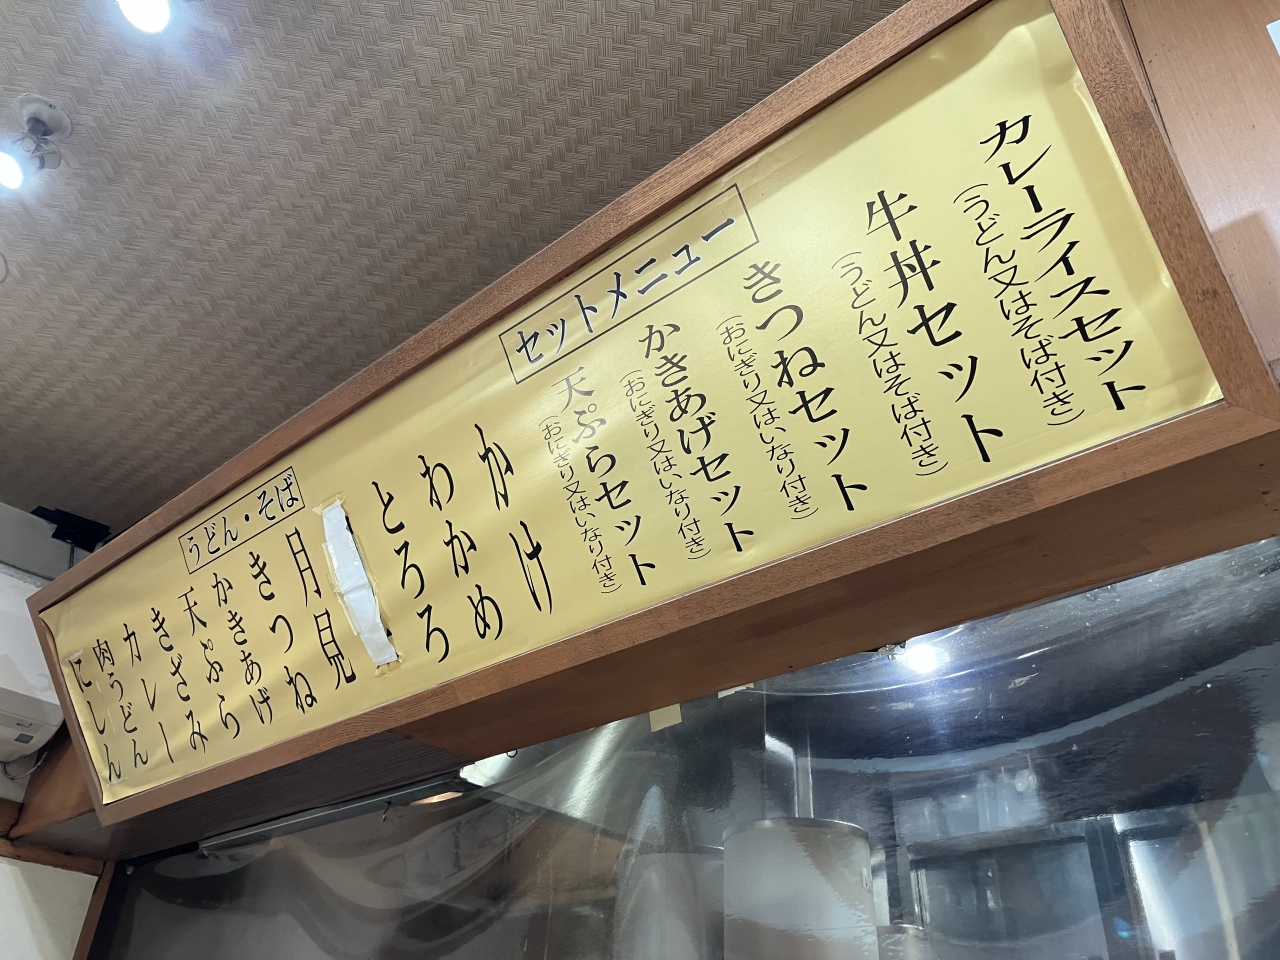 カレーライスセット
(うどん又はそば付き)
牛丼セット
(うどん又はそば付き)
セットメニュー
きつねセット
(おにぎり又はいなり付き)
かきあげセット
(おにぎり又はいなり付き)
天ぷらセット
(おにぎり又はいなり付き)
かけ
わかめ
とろろ
月見
うどん・そば
きつね
かきあげ
天ぷら
きざみ
カレー
肉うどん
にしん